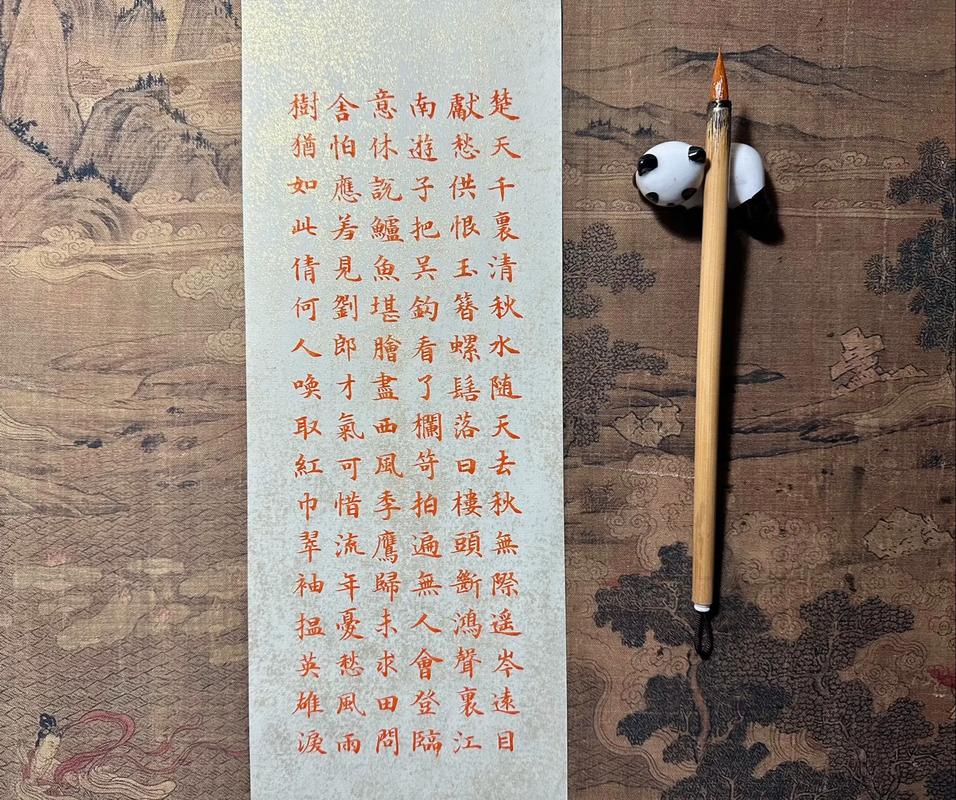 楚天千裏清秋水随天去秋無際遥岑遠目
獻愁供恨玉簪螺髻落日樓頭斷鴻聲裏江
南遊子把吴鈎看了欄笴拍遍無人會登臨
意休說鱸魚堪膾盡西風季鷹歸未求田問
舍怕應羞見劉郎才氣可惜流年憂愁風雨
樹猶如此倩何人喚取紅巾翠袖揾英雄淚